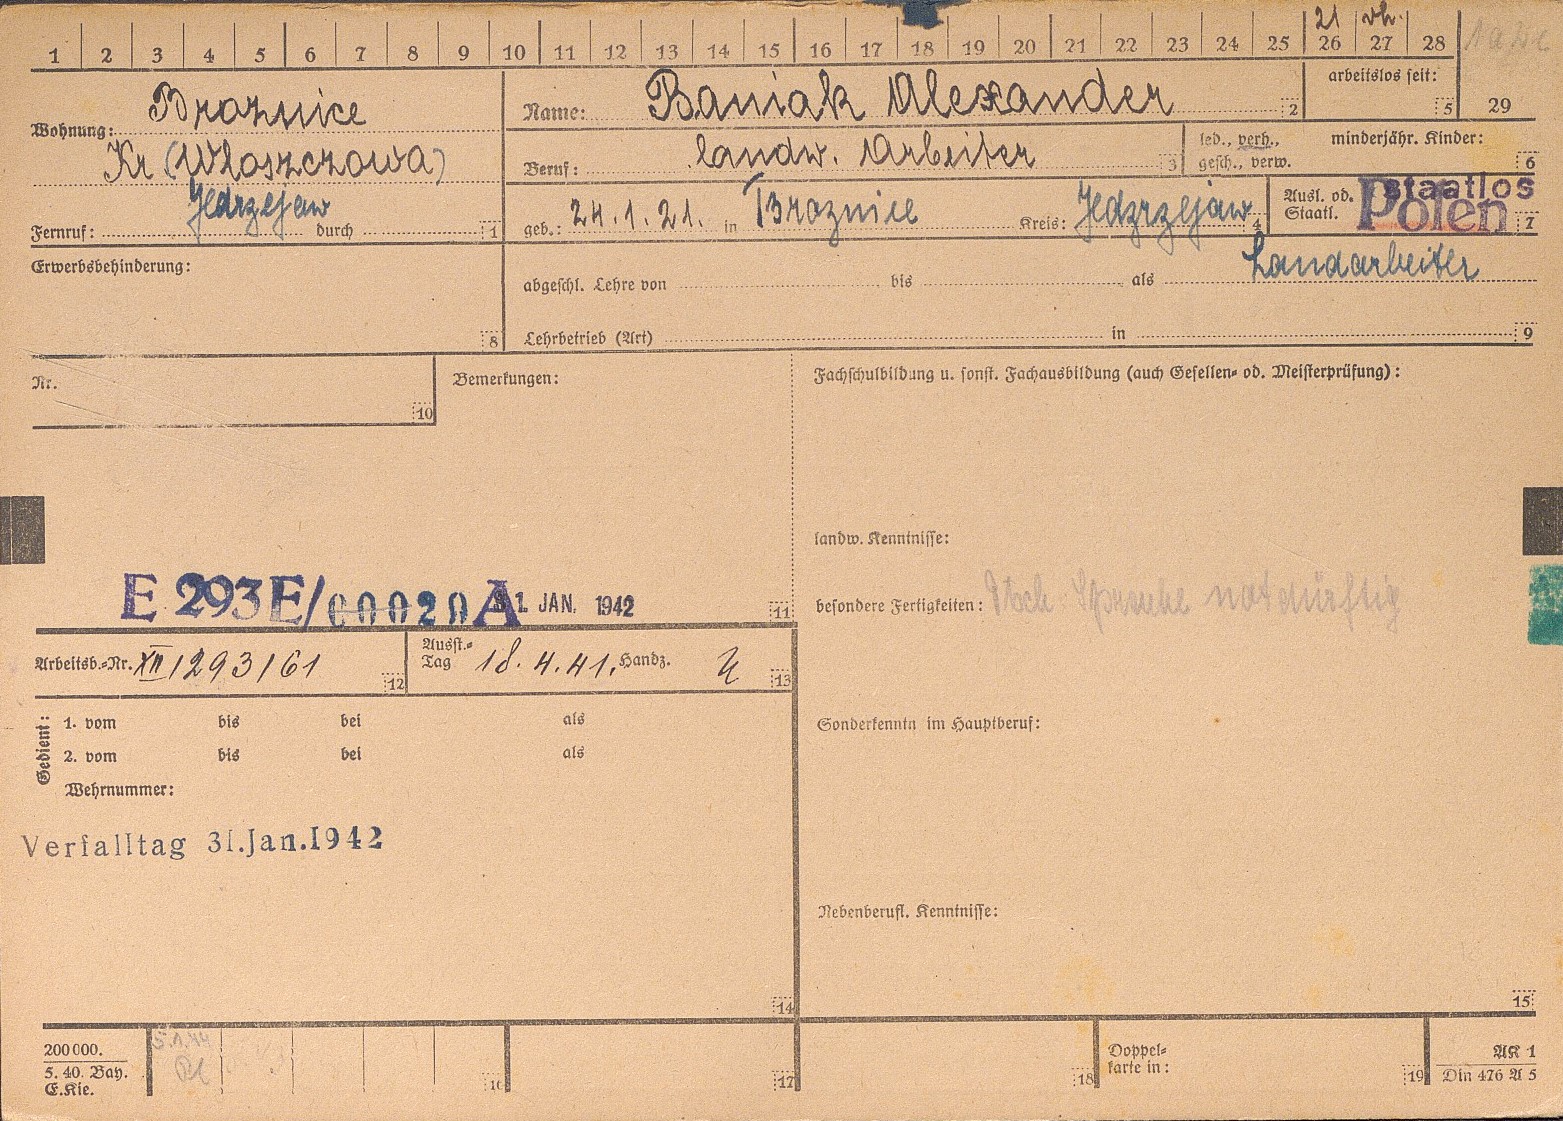 21 vh.
1 2 3 4 5 6 7 8 9 10 11 12 13 14 15 16 17 18 19 20 21 22 23 24 25 26 27 28
Wohnung: Broznice
Kr (Wloszczowa)
Jedrzejaw
Fernruf: durch 1
Name: Baniak Alexander 2
arbeitslos seit: 5
29
Beruf: landw. Arbeiter 3
led., verh.,
gesch., verw.
minderjähr. Kinder: 6
geb.: 24.1.21. in Broznice Kreis: Jedzrzejaw 4
Ausl. od.
Staatl.
staatlos
Polen 7
Erwerbsbehinderung:
8
abgeschl. Lehre von bis als Landarbeiter
Lehrbetrieb (Art) in 9
Nr.
10
Bemerkungen:
Fachschulbildung u. sonst. Fachausbildung (auch Gesellen- od. Meisterprüfung):
landw. Kenntnisse:
besondere Fertigkeiten: Dtsch. Sprache notdürftig
E 293E/00020A 31. JAN. 1942 11
Arbeitsb.-Nr. XII/293/61 12
Ausst.-
Tag 18.4.41. Handz. 13
Gedient:
1. vom bis bei als
2. vom bis bei als
Wehrnummer:
Verfalltag 31.Jan.1942
14
Sonderkenntn im Hauptberuf:
Nebenberufl. Kenntnisse:
15
200 000.
5. 40. Bay.
E.Kie.
5.1.44
16
17
18
Doppel-
karte in:
19
AK 1
Din 476 A 5